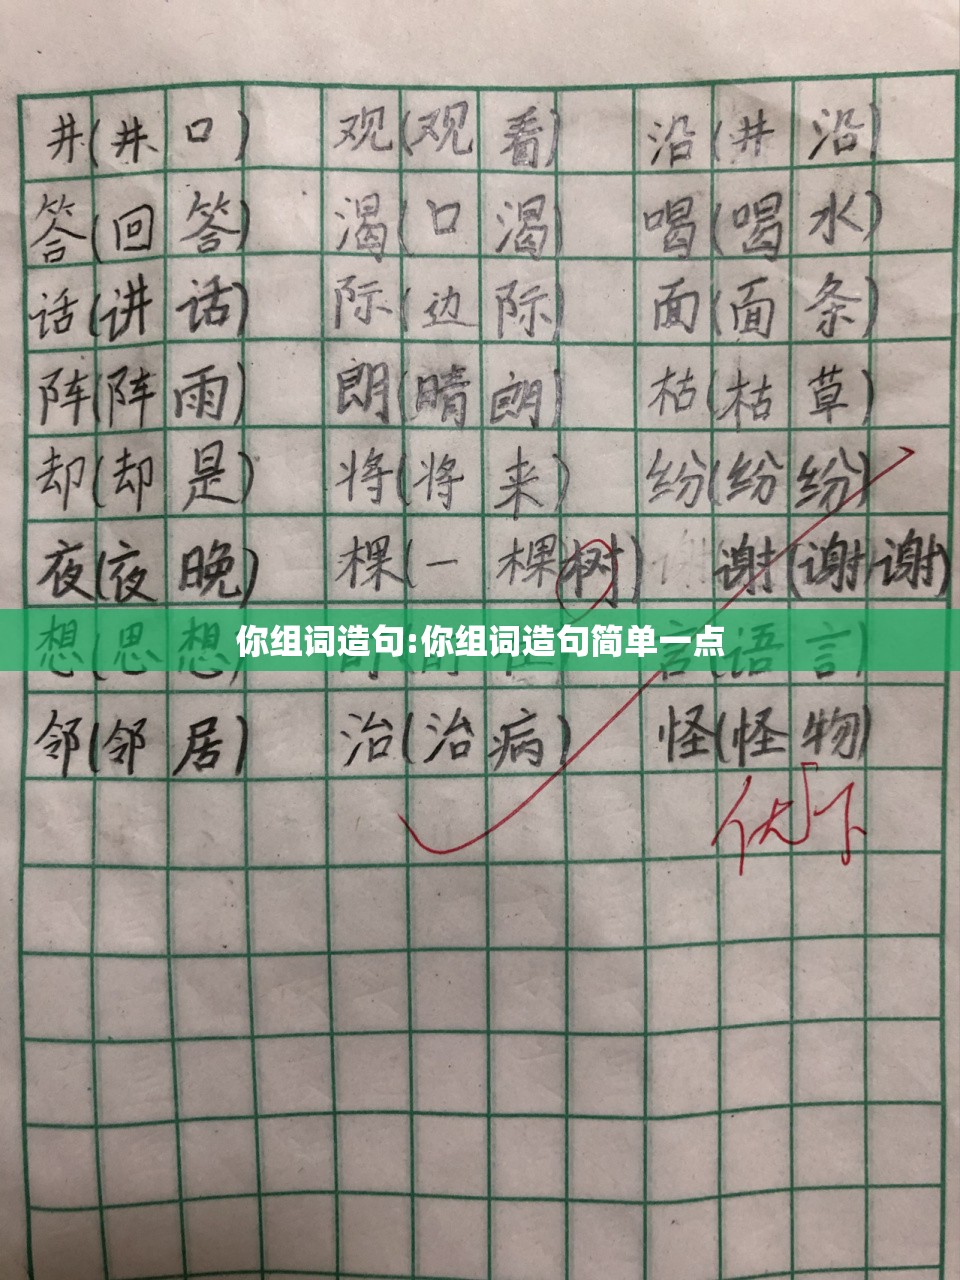 井(井口) 观(观看) 沿(井沿)
答(回答) 渴(口渴) 喝(喝水)
话(讲话) 际(边际) 面(面条)
阵(阵雨) 朗(晴朗) 枯(枯草)
却(却是) 将(将来) 纷(纷纷)
夜(夜晚) 棵(一棵树) 谢(谢谢)
你组词造句:你组词造句简单一点
想(思想) 言(语言)
邻(邻居) 治(治病) 怪(怪物)
优下